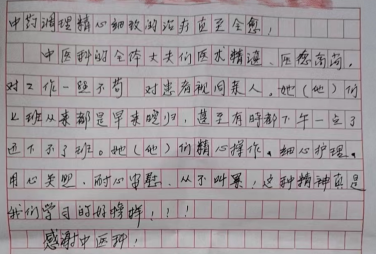 中药调理精心细致的治疗直至全愈，
中医科的全体大夫们医术精湛、医德高尚，
对工作一丝不苟 对患者视同亲人，她（他）们
上班从来都是早来晚归，甚至有时都下午一点了
还下不了班。她（他）们精心操作、细心护理、
用心关照，耐心安慰，从不叫累，这种精神真是
我们学习的好榜样！！！
感谢中医科！